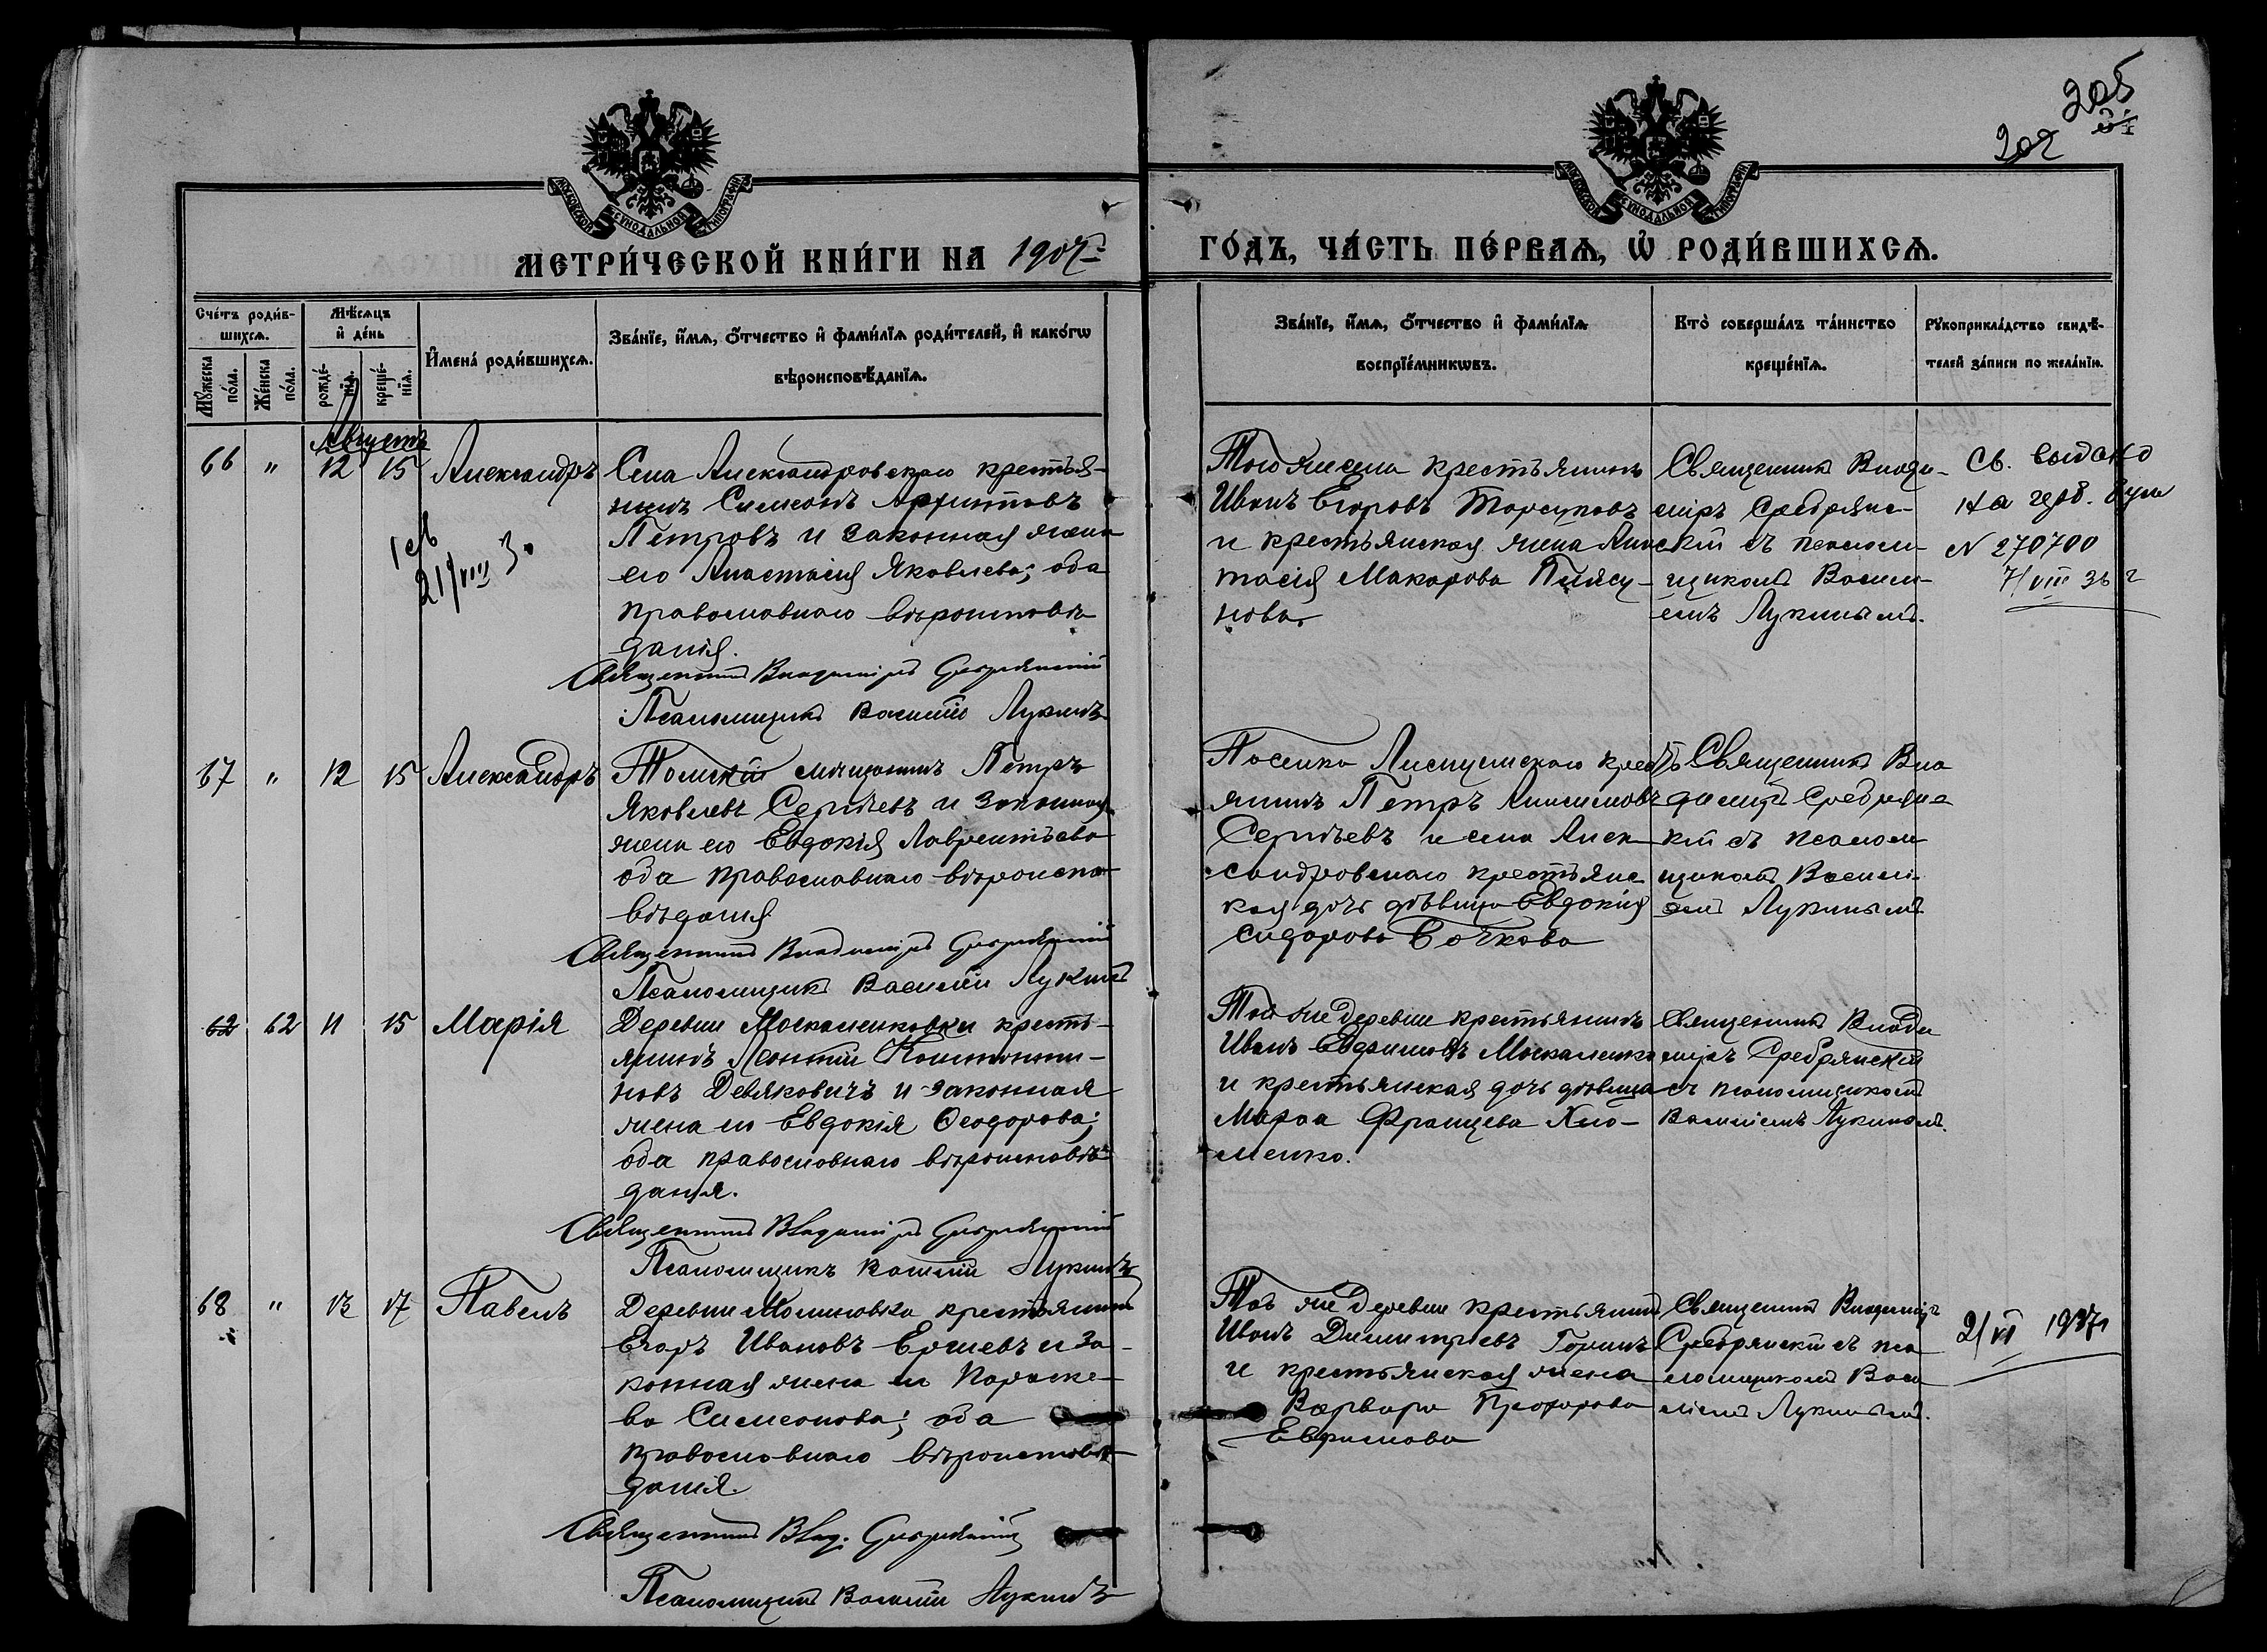 205
202
МОСКОВСКОЙ СѴНОДАЛЬНОЙ ТИПОГРАФІИ
МОСКОВСКОЙ СѴНОДАЛЬНОЙ ТИПОГРАФІИ
МЕТРИ́ЧЕСКОЙ КНИ́ГИ НА 1907
ГО́ДЪ, ЧА́СТЬ ПЕ́РВАѦ, Ѡ҆ РОДИ́ВШИХСѦ.
Сче́тъ роди́в-
шихсѧ.
Мѣсѧцъ
и҆ де́нь
И҆мена̀ роди́вшихсѧ.
Зва́нїе, и҆́мѧ, ѻ҆́тчество и҆ фами́лїѧ роди́телей, и҆ како́гѡ
вѣроисповѣ́данїѧ.
Мꙋ́жеска
по́ла.
Же́нска
по́ла.
рожде́-
нїѧ.
креще́-
нїѧ.
Зва́нїе, и҆́мѧ, ѻ҆́тчество и҆ фами́лїѧ
воспрїе́мникѡвъ.
Кто̀ соверша́лъ та́инство
креще́нїѧ.
Рꙋкоприкла́дство свидѣ́-
телей за́писи по жела́нїю.
Августъ
66 " 12 15 Александръ
Села Александровскаго крестья-
нинъ Симеонъ
Петровъ и законная жена
его Анастасія Яковлева; оба
православнаго вѣроисповѣ
данія.
Священникъ Владиміръ Сребрянскій
Псаломщикъ Василій Лукинъ
21/VIII 3
Того же села крестьянинъ
Иванъ Егоровъ Торсуковъ
и крестьянская жена Анас
тасія Макарова
нова.
Священникъ Влади-
міръ Сребрянс-
кій съ псалом
щикомъ Васил-
емъ Лукинымъ.
Св. выдано
на
N 270700
7/VIII 36 г
67 " 12 15 Александръ
Томскій мѣщанинъ Петръ
Яковлевъ Сергѣевъ и законная
жена его Евдокія Лаврентьева
оба православнаго вѣроиспо-
вѣданія
Священникъ Владиміръ Сребрянскій
Псаломщикъ Василій Лукинъ
Поселка кресть
янинъ Петръ Анисимовъ
Сергѣевъ и села Алек-
сандровскаго крестьянс
кая дочь дѣвица Евдокія
Сидорова Бочкова
Священникъ Вла
диміръ Сребрянс
кій съ псалом
щикомъ Васили-
емъ Лукинымъ
62 62 11 15 Марія
Деревни Москаленковки кресть-
янинъ Леонтій Константи-
новъ Девяковичъ и законная
жена его Евдокія Ѳеодорова;
оба православнаго вѣроисповѣ
данія.
Священникъ Владиміръ Сребрянскій
Псаломщикъ Василій Лукинъ
Той же деревни крестьянинъ
Иванъ Евфимовъ Москаленко
и крестьянская дочь дѣвица
Марѳа Францева Хло-
менко.
Священникъ Влади
міръ Сребрянскій
съ псаломщикомъ
Василіемъ Лукинымъ.
68 " 13 17 Павелъ
Деревни Малиновка крестьянинъ
Егоръ Ивановъ Ершевъ и за-
конная жена его Параске-
ва Симеонова; оба
православнаго вѣроисповѣ
данія.
Священникъ Влад. Сребрянскій
Псаломщикъ Василій Лукинъ
Той же деревни крестьянинъ
Иванъ Димитріевъ Горинъ
и крестьянская жена
Варвара Прохорова
Евфимова
Священникъ Владиміръ
Сребрянскій съ пса
ломщикомъ Васи
ліемъ Лукинымъ.
2/VI 1937г